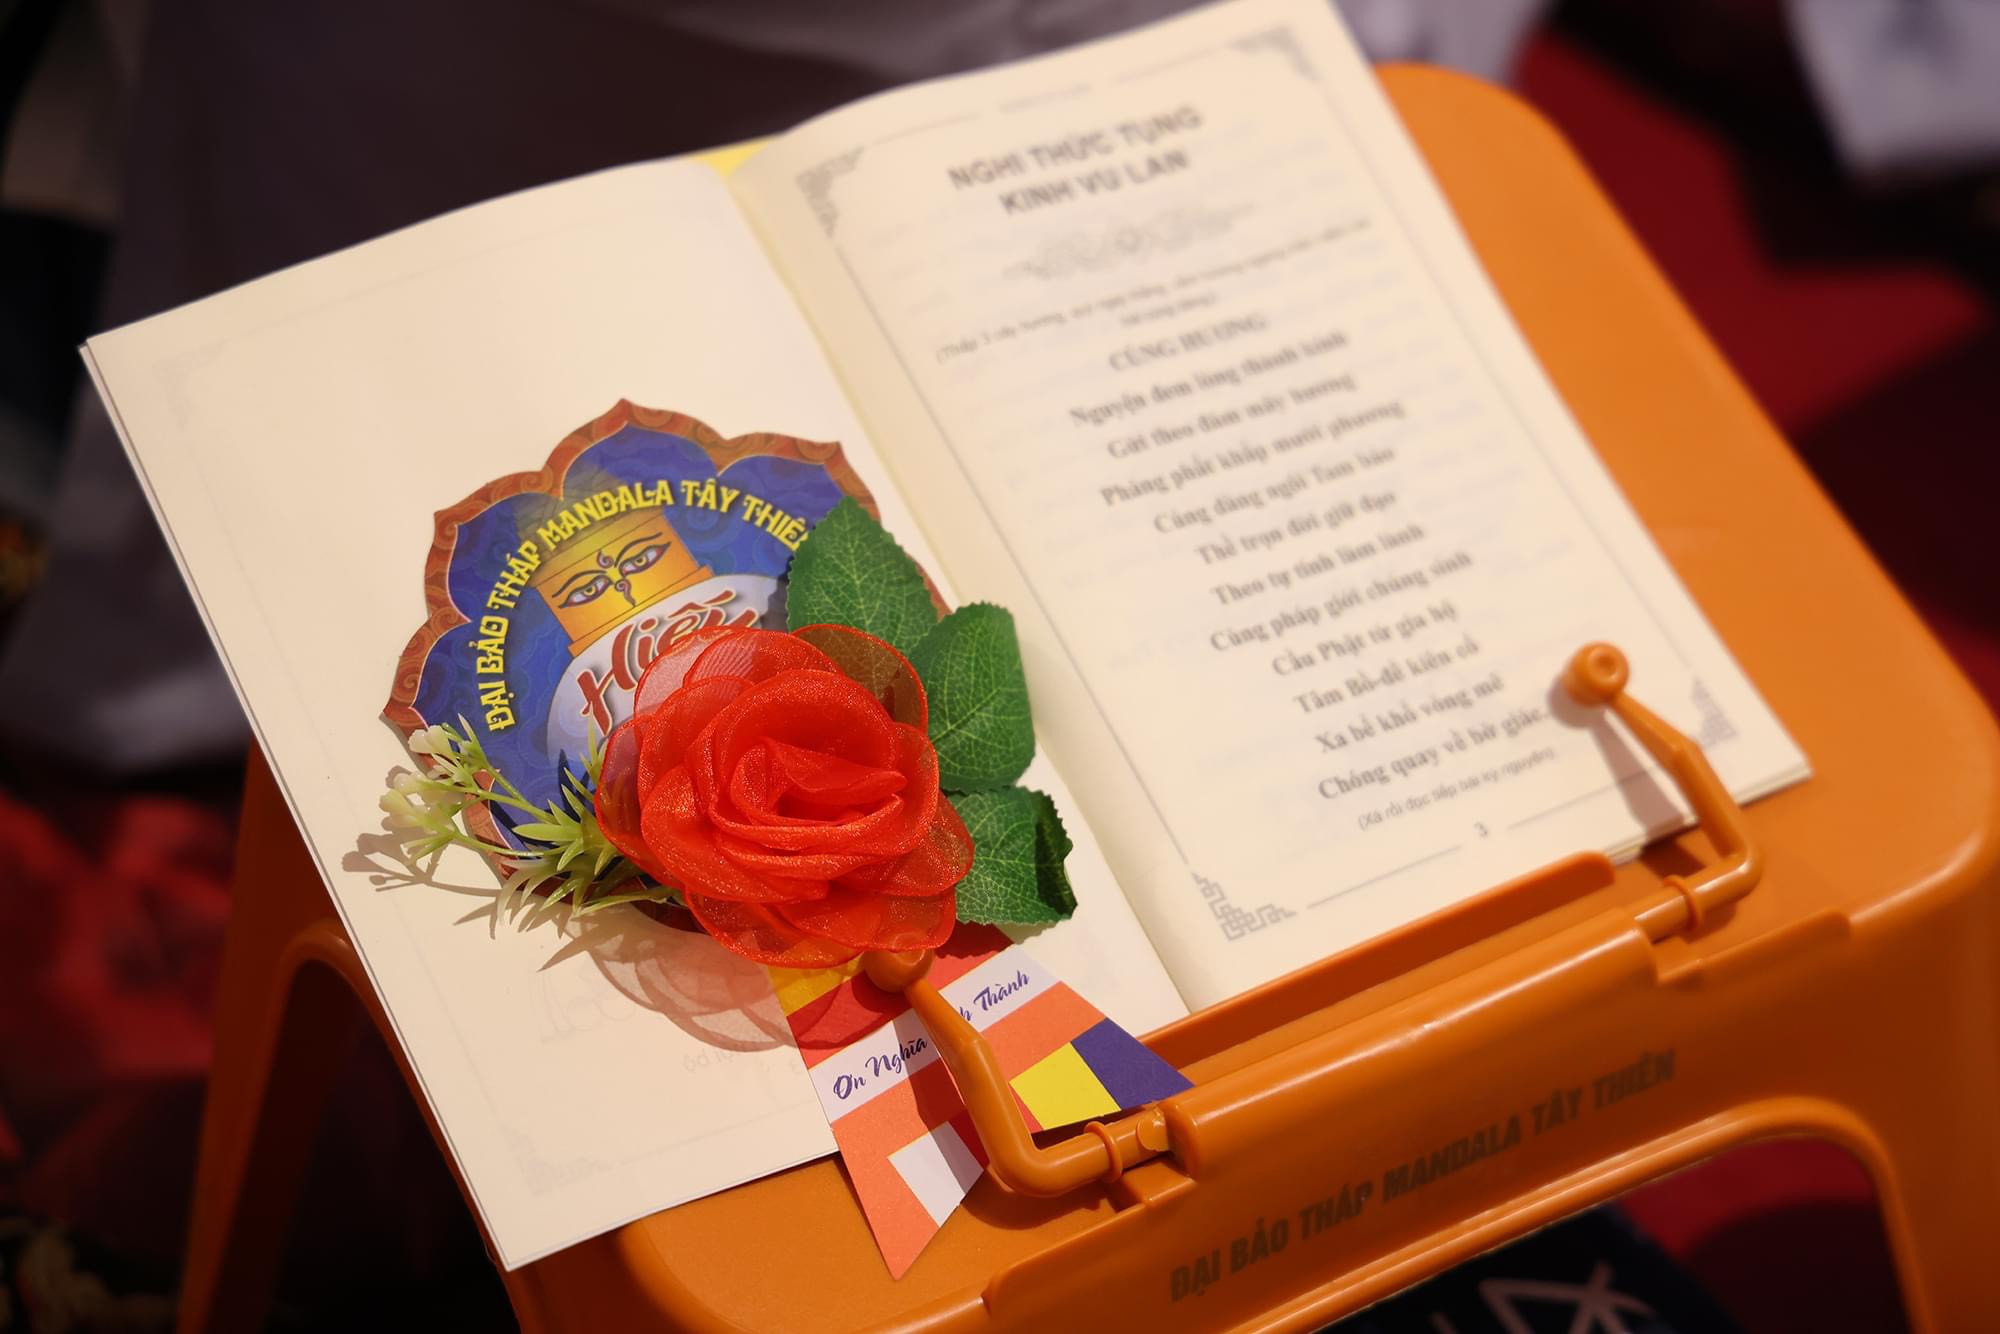 ĐẠI BẢO THÁP MANDALA TÂY THIÊN
Hiếu
Ơn Nghĩa
h Thành
NGHI THỨC TỤNG
KINH VU LAN
CÚNG HƯƠNG
Nguyện đem lòng thành kính
Gửi theo đám mây hương
Phảng phất khắp mười phương
Cúng dàng ngôi Tam bảo
Thề trọn đời giữ đạo
Theo tự tính làm lành
Cùng pháp giới chúng sinh
Cầu Phật từ gia hộ
Tâm Bồ-đề kiên cố
Xa bể khổ sông mê
Chóng quay về bờ giác.
(Xá rồi đọc tiếp bài kỳ nguyện)
3
ĐẠI BẢO THÁP MANDALA TÂY THIÊN